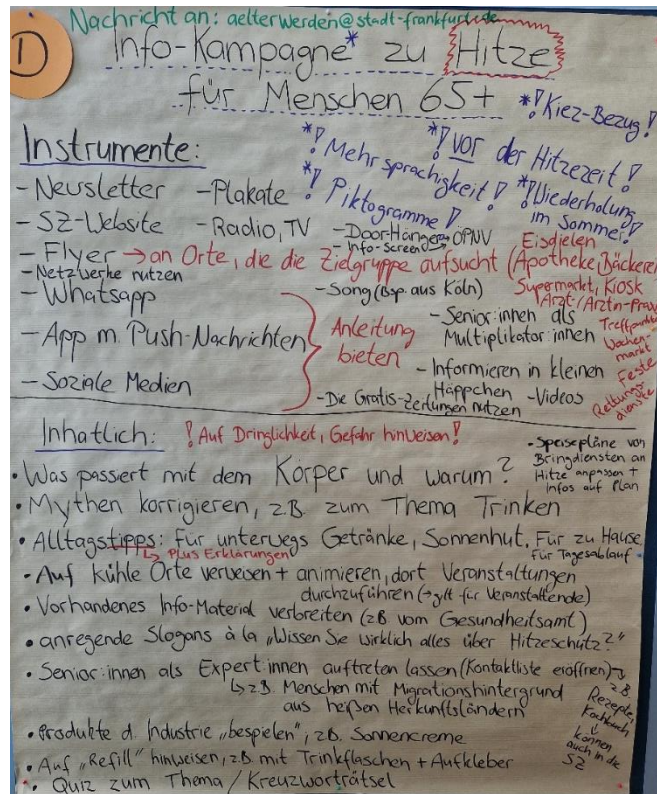 Nachricht an: aelterwerden@stadt-frankfurt.de
1
Info-Kampagne* zu Hitze
für Menschen 65+
*! Kiez-Bezug!
*! Mehrsprachigkeit!
*! VOR der Hitzezeit!
*! Piktogramme!
*! Wiederholung im Sommer!
Instrumente:
- Newsletter
- Plakate
- SZ-Website
- Radio, TV
- Door-Hänger
- Info-Screen → ÖPNV
- Flyer → an Orte, die die Zielgruppe aufsucht (Apotheke, Bäckerei
Eisdielen
Supermarkt, Kiosk
Arzt/Ärztin-Praxis
Treffpunkte
Wochen-
markt
Feste
Rettungs-
dienste
- Netzwerke nutzen
- Whatsapp
- App m. Push-Nachrichten
- Soziale Medien
Anleitung
bieten
- Song (Bsp. aus Köln)
- Senior:innen als
Multiplikator:innen
- Informieren in kleinen
Häppchen
- Videos
- Die Gratis-Zeitungen nutzen
Inhaltlich: ! Auf Dringlichkeit, Gefahr hinweisen!
- Speisepläne von
Bringdiensten an
Hitze anpassen +
Infos auf Plan
• Was passiert mit dem Körper und warum?
• Mythen korrigieren, z.B. zum Thema Trinken
• Alltagstipps: für unterwegs Getränke, Sonnenhut, Für zu Hause
↳ plus Erklärungen
für Tagesablauf
• Auf kühle Orte verweisen + animieren, dort Veranstaltungen
durchzuführen (→ gilt für Veranstaltende)
• Vorhandenes Info-Material verbreiten (zB vom Gesundheitsamt)
• anregende Slogans à la „Wissen Sie wirklich alles über Hitzeschutz?"
• Senior:innen als Expert:innen auftreten lassen (Kontaktliste eröffnen)
↳ z.B. Menschen mit Migrationshintergrund
aus heißen Herkunftsländern
z.B.
Rezepte,
Kochbuch
↓
können
auch in die
SZ
• Produkte d. Industrie „bespielen", z.B. Sonnencreme
• Auf „Refill" hinweisen, z.B. mit Trinkflaschen + Aufkleber
• Quiz zum Thema / Kreuzworträtsel